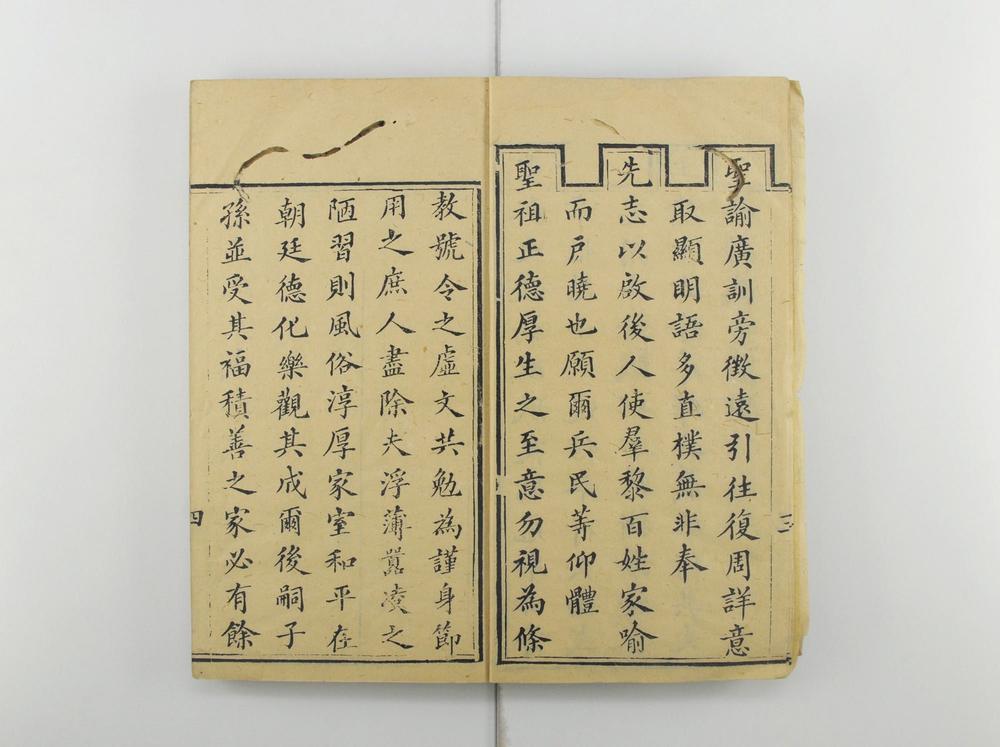 聖諭廣訓旁徵遠引往復周詳意
取顯明語多直樸無非奉
先志以啟後人使羣黎百姓家喻
而戶曉也願爾兵民等仰體
聖祖正德厚生之至意勿視為條
教號令之虛文共勉為謹身節
用之庶人盡除夫浮薄囂凌之
陋習則風俗淳厚家室和平在
朝廷德化樂觀其成爾後嗣子
孫並受其福積善之家必有餘
四